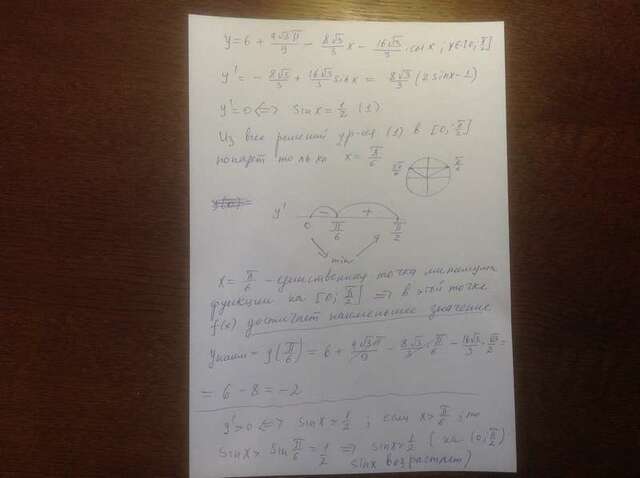 y = 6 + 4√3π/9 − 8√3/3 x − 16√3/3 cos x ; x∈[0; π/2]
y' = − 8√3/3 + 16√3/3 sin x = 8√3/3 (2 sin x − 1)
y' = 0 ⇔ sin x = 1/2 (1)
Из всех решений ур-ия (1) в [0; π/2]
попадет только x = π/6
5π/6 π/6
y' − +
0 π/6 π/2
min
x = π/6 - единственная точка минимума
функции на [0; π/2] ⇒ в этой точке
f(x) достигает наименьшее значение
yнаим = y(π/6) = 6 + 4√3π/9 − 8√3/3 · π/6 − 16√3/3 · √3/2 =
= 6 − 8 = −2
y' > 0 ⇔ sin x > 1/2 ; если x > π/6 , то
sin x > sin π/6 = 1/2 ⇒ sin x > 1/2 (на (0; π/2)
sin x возрастает)